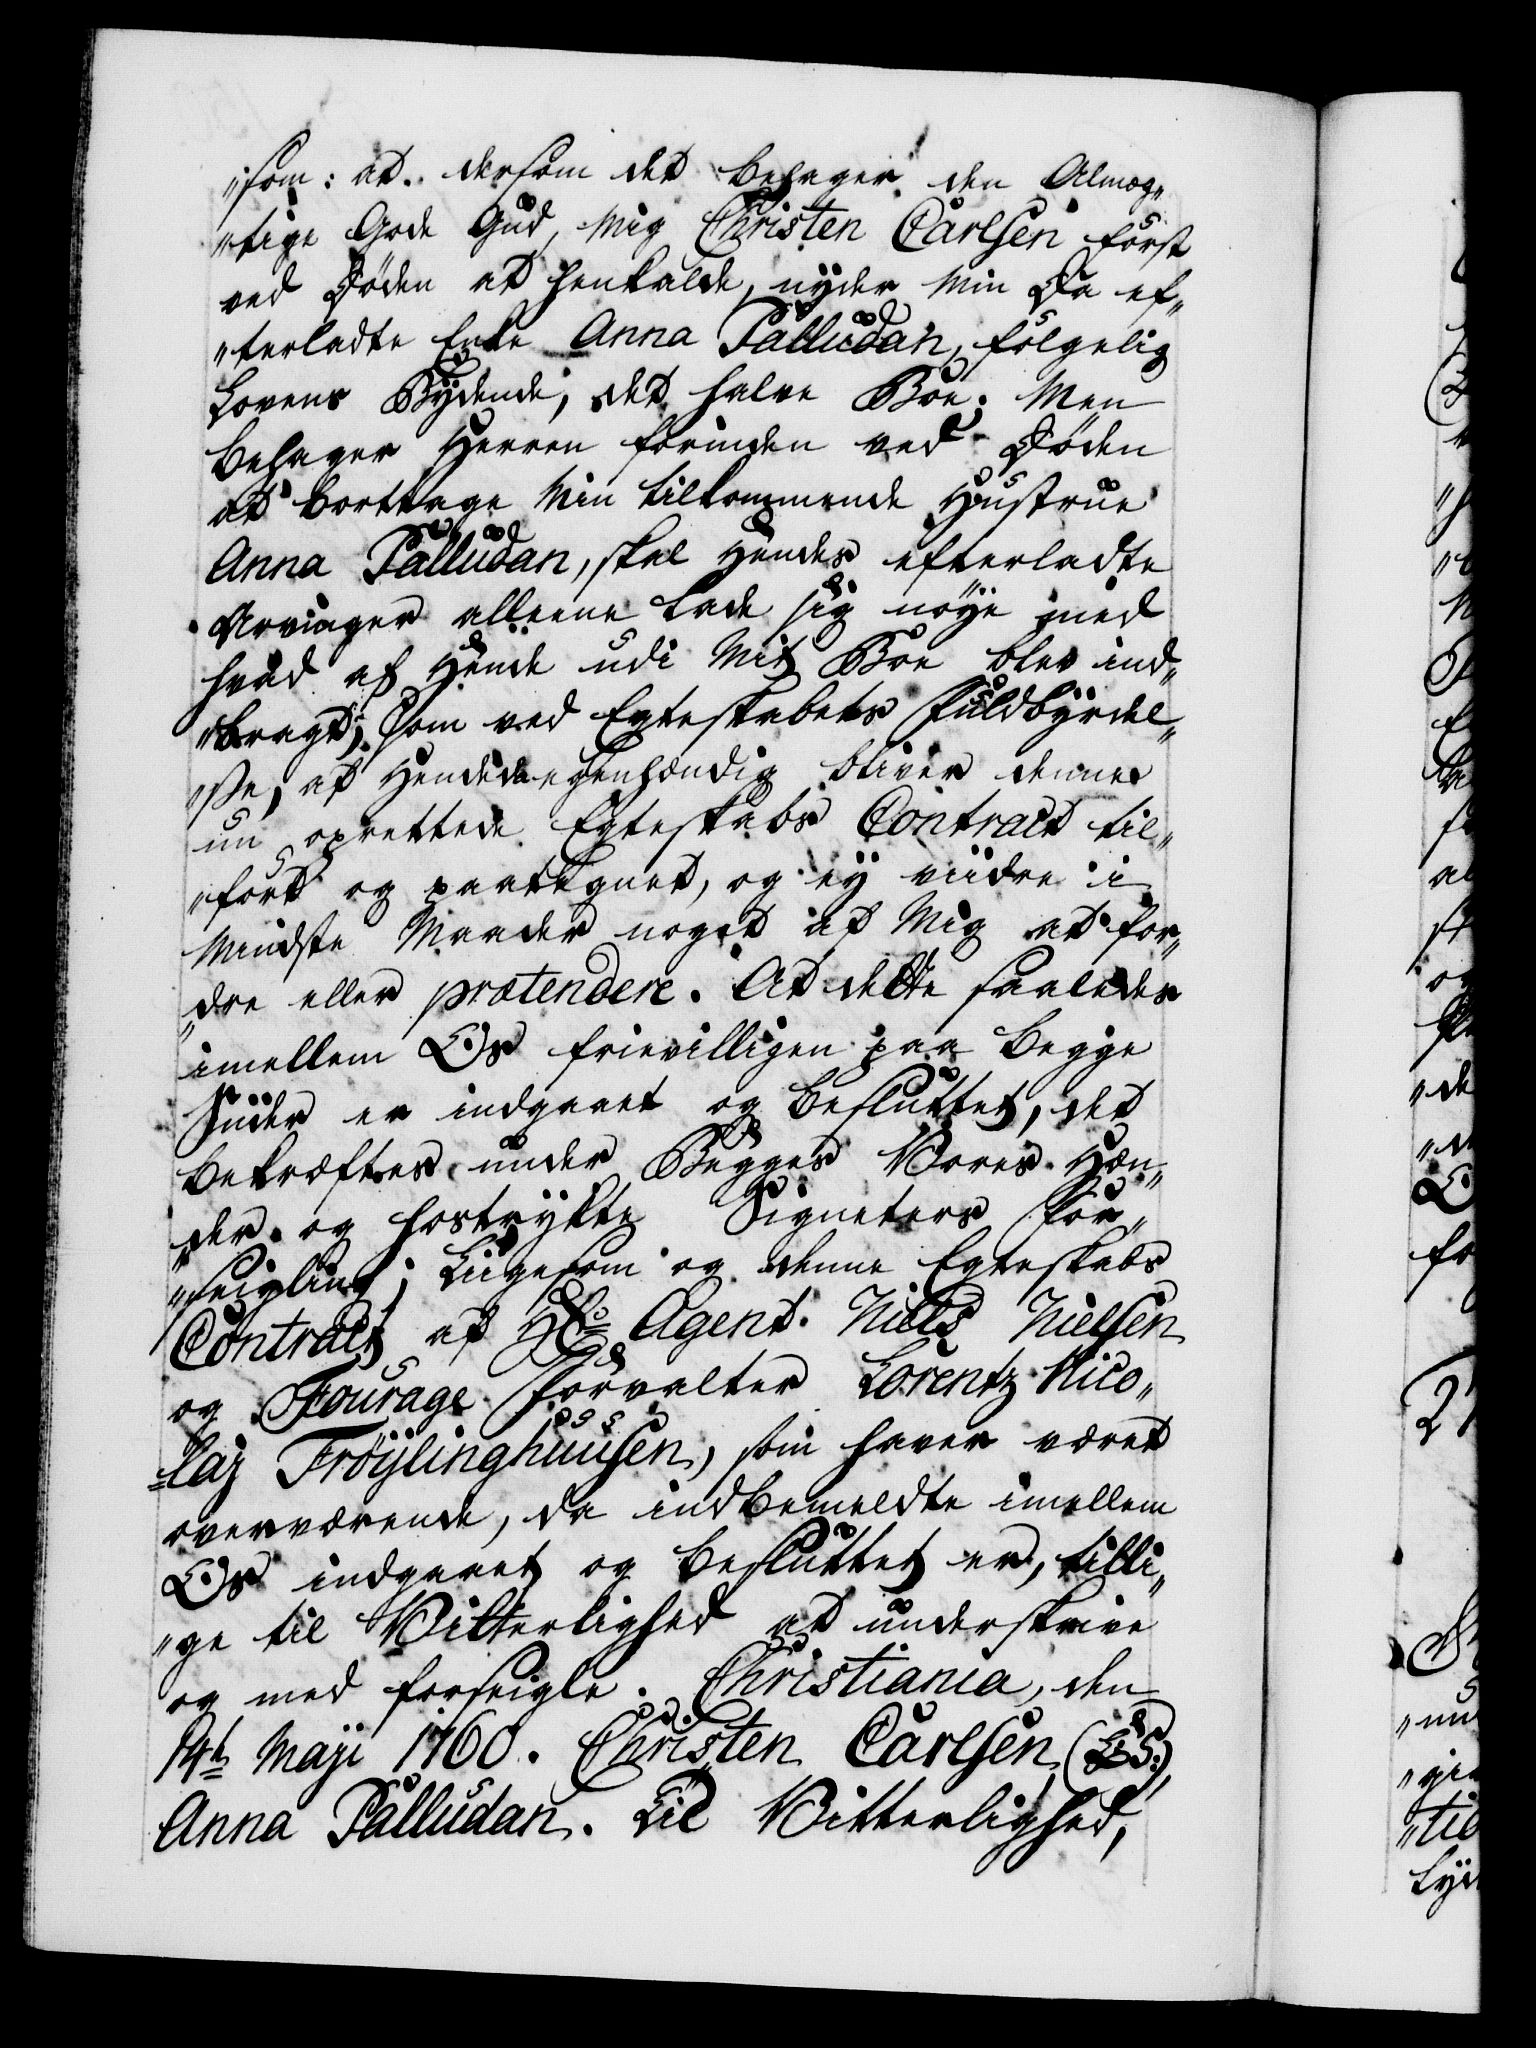 "som: at dersom det behager den Almæg„
"tige Gode Gud, mig Christen Carlsen først
ved Døden at henkalde, nyder min da ef„
"terladte Enke Anna Palludan, følgelig
Lovens Bydende, det halve Boe; Men
behager Herren forinden ved Døden
at borttage min tilkommende Hustrue
Anna Palludan, skal Hendes efterladte
Arvinger alleene lade sig nøye med
hvad af Hende udi mit Boe blev ind„
"bragt; som ved Egteskabets Fuldbyrdel„
"se, af Hende egenhændig bliver denne
nu oprettede Egteskabs Contract til„
"ført og paategnet, og ey viidre i
mindste Maader noget af Mig at for„
"dre eller prætendere. At dette saaledes
imellem Os frievilligen paa begge
Siider er indgaaet og besluttet, det
bekræftes under Begges Vores Hæn„
"der og hostrykte Signeters For„
"seigling; Liigesom og denne Egteskabs
Contract af Hr Agent Niels Nielsen
og Fourage Forvalter Lorentz Nico„
"laj Frøylinghuusen, som haver været
overværende, da indbemeldte imellem
Os indgaaet og besluttet er, tilli„
"ge til Vitterlighed at underskrive
og med forseigle. Christiania, den
14de Maji 1760. Christen Carlsen (L.S.)
Anna Palludan. Til Vitterlighed,